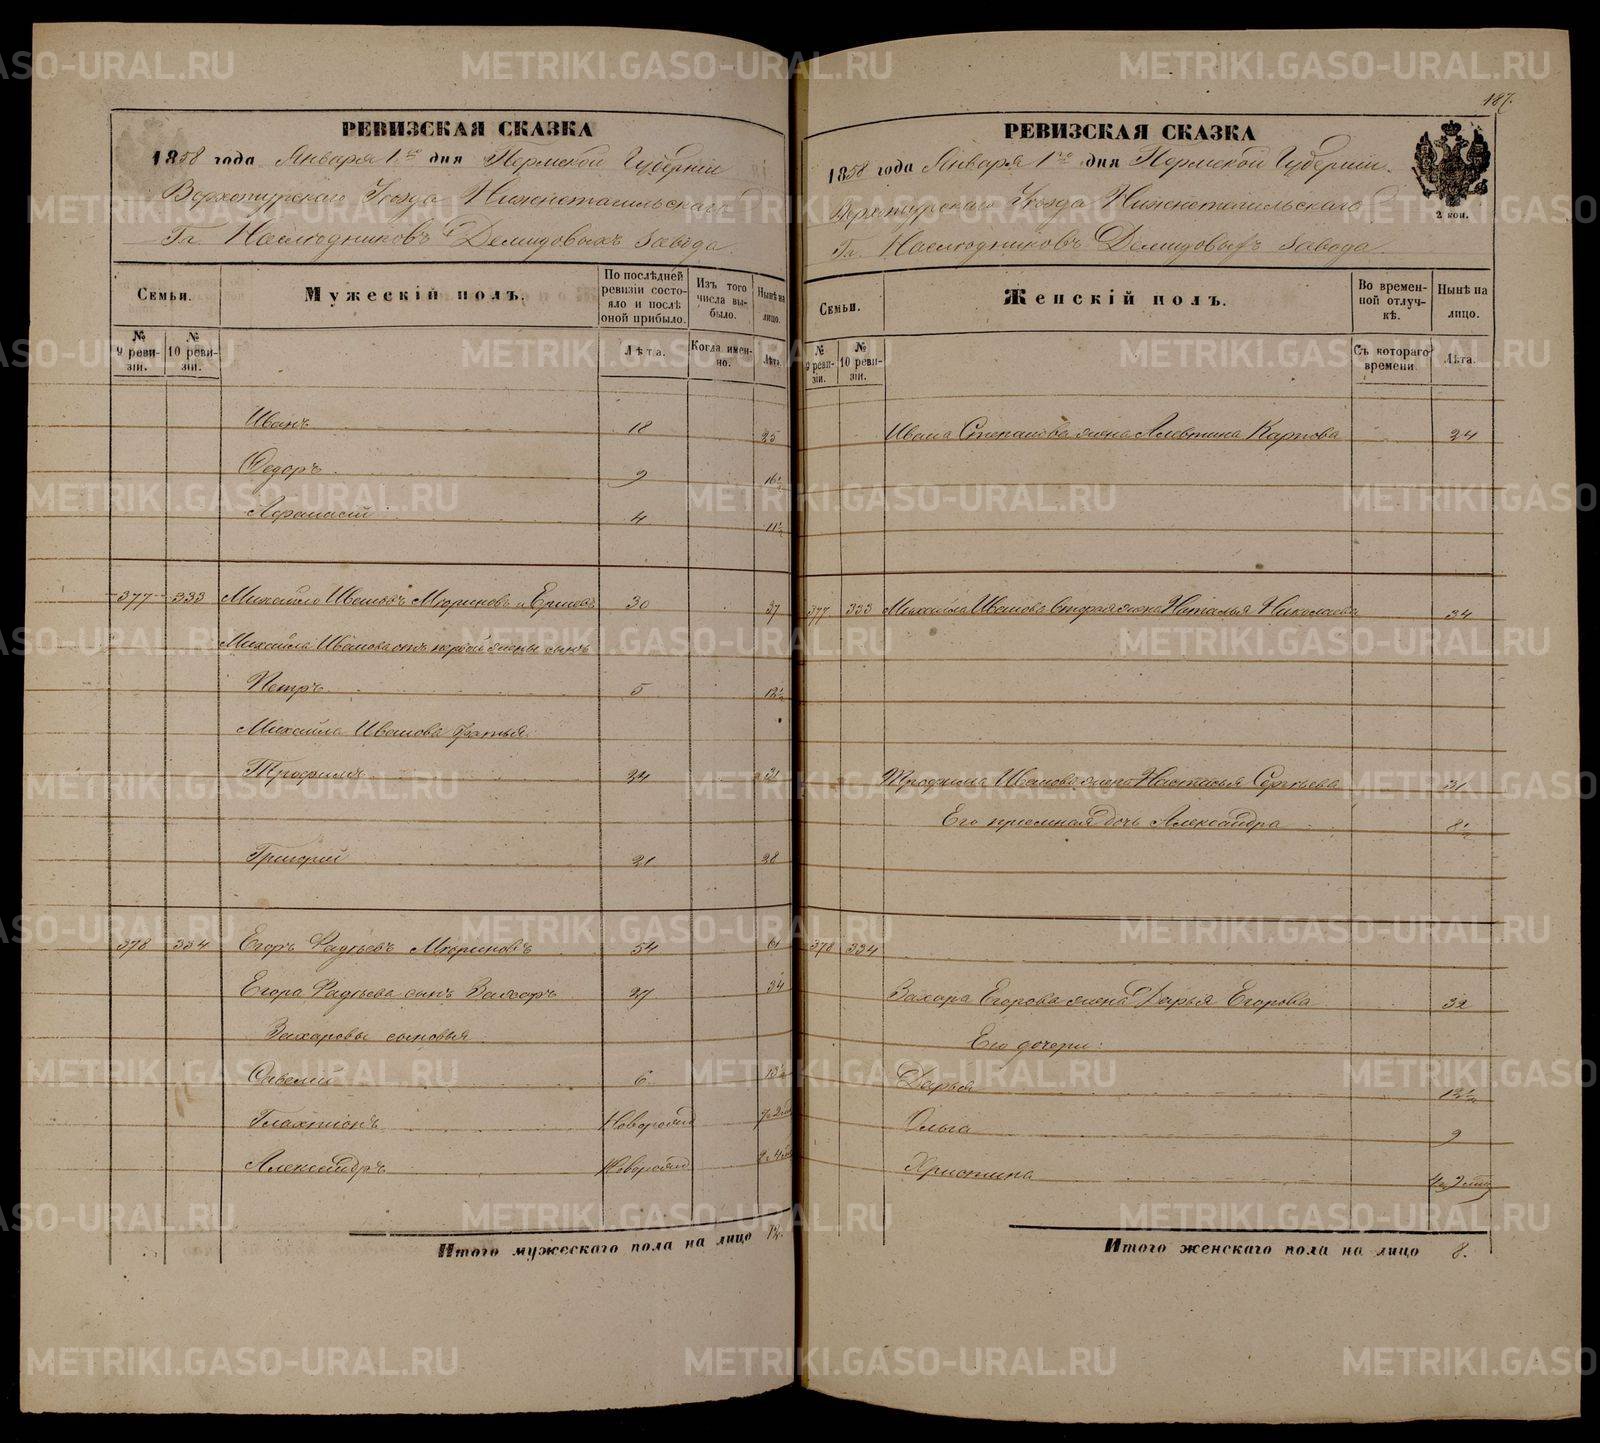 187.
РЕВИЗСКАЯ СКАЗКА
1858 года Января 1го дня Пермской Губерніи
Верхотурскаго Уезда Нижнетагильскаго
Гг. Наследниковъ Демидовыхъ завода
Семьи.
Мужескій полъ.
По послѣдней ревизіи состояло и послѣ оной прибыло.
Изъ того числа выбыло.
Нынѣ на лицо.
№ 9 ревизіи.
№ 10 ревизіи.
Лѣта.
Когда именно.
Лѣта.
Иванъ 18 25
Федоръ 9 16½
Афанасій 4 11½
377 333 Михайло Ивановъ Мюриновъ и Ершовъ 30 37
Михайла Иванова отъ первой жены сынъ
Петръ 5 12½
Михайла Иванова братья
Трофимъ 24 31
Григорій 21 28
378 334 Егоръ Фадѣевъ Мюриновъ 54 61
Егора Фадѣева сынъ Захаръ 27 34
Захаровы сыновья
Савелій 6 13½
Галахтіонъ Новорожд
Александръ Новорожд
Итого мужескаго пола на лицо 12.
РЕВИЗСКАЯ СКАЗКА
1858 года Января 1го дня Пермской Губерніи.
Верхотурскаго Уезда Нижнетагильскаго
Гг. Наследниковъ Демидовыхъ завода
2 коп.
Семьи.
Женскій полъ.
Во временной отлучкѣ.
Нынѣ на лицо.
№ 9 ревизіи.
№ 10 ревизіи.
Съ котораго времени
Лѣта.
Ивана Степанова жена Алевтина Карпова 24
377 333 Михайла Иванова вторая жена Наталья Николаева 34
Трофима Иванова жена Настасья Сергѣева 31
Его приемная дочь Александра 8½
378 334
Захара Егорова жена Дарья Егорова 32
Его дочери:
Дарья 12½
Ольга 9
Христина
Итого женскаго пола на лицо 8.
METRIKI.GASO-URAL.RU